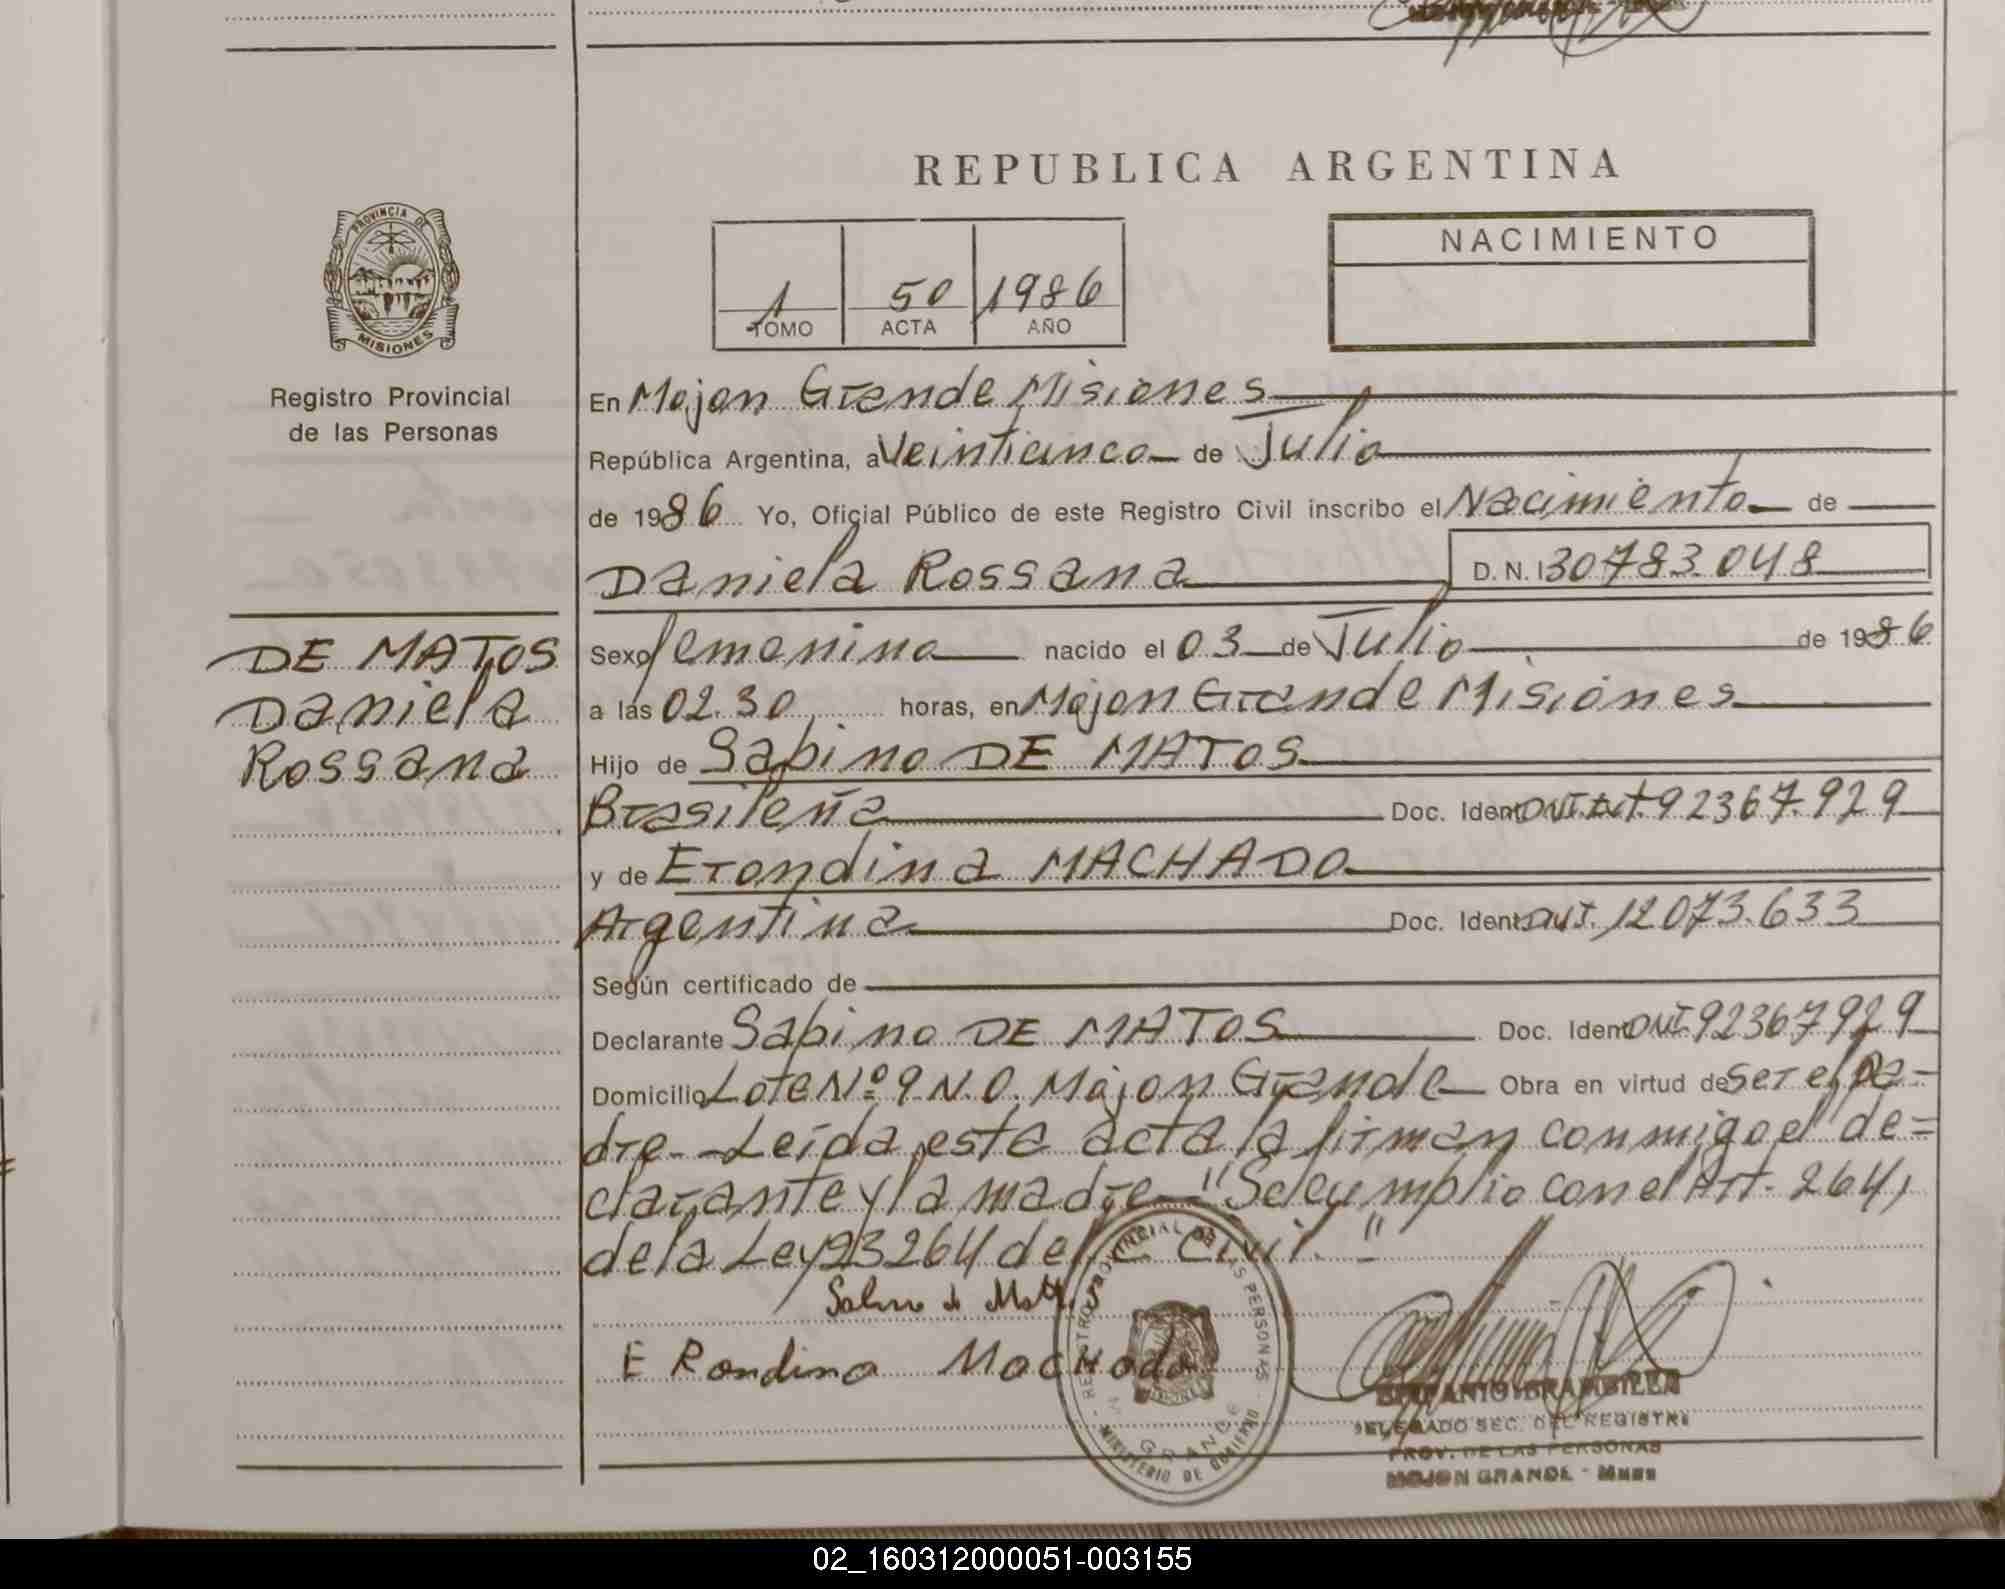 REPUBLICA ARGENTINA
PROVINCIA DE
MISIONES
Registro Provincial
de las Personas
1 50 1986
TOMO ACTA AÑO
NACIMIENTO
En Mojon Grande Misiones
República Argentina, a Veinticinco de Julio
de 1986 Yo, Oficial Público de este Registro Civil inscribo el Nacimiento de
Daniela Rossana D. N. I 30783.048
DE MATOS
Daniela
Rossana
Sexo femenino nacido el 03 de Julio de 1986
a las 02.30 horas, en Mojon Grande Misiones
Hijo de Sabino DE MATOS
Brasileña Doc. Ident DNI. Ext. 92367.929
y de Erondina MACHADO
Argentina Doc. Ident DNI. 12073.633
Según certificado de
Declarante Sabino DE MATOS Doc. Ident DNI 92367929
Domicilio Lote Nº 9 N.O. Mojon Grande Obra en virtud de ser el pa-
dre.- Leída esta acta la firman conmigo el de=
clarante y la madre.- "Se cumplio con el Art. 264,
de la Ley 23264 del C. Civil."
E Rondina Machado
REGISTRO PROVINCIAL DE LAS PERSONAS
GRANDE
MINISTERIO DE GOBIERNO
DELEGADO SEC. DEL REGISTRO
PROV. DE LAS PERSONAS
MOJON GRANDE - Mnes
02_160312000051-003155